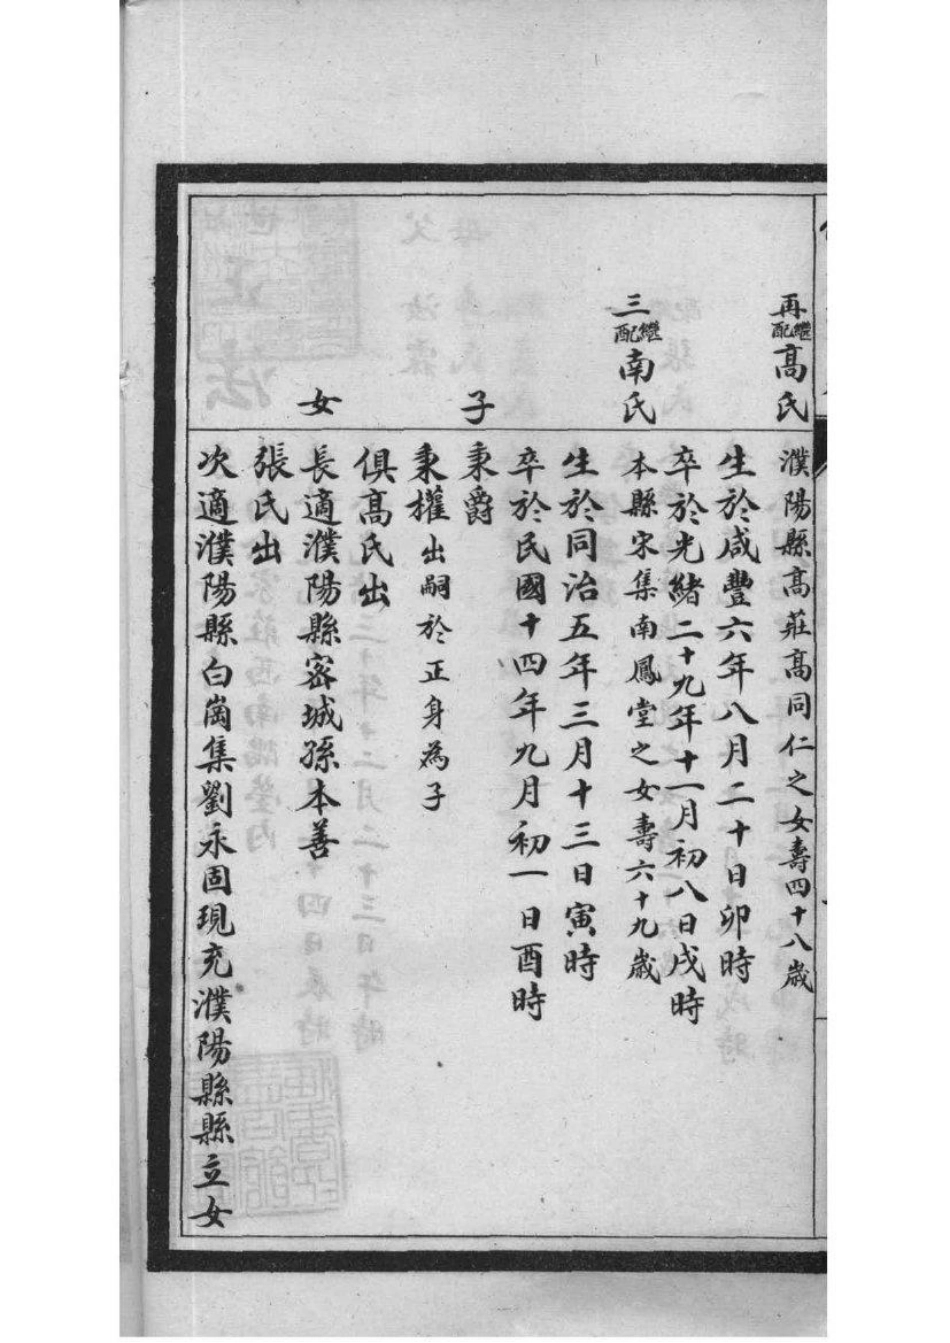 再繼配高氏
濮陽縣高莊高同仁之女壽四十八歲
生於咸豐六年八月二十日卯時
卒於光緒二十九年十一月初八日戌時
三繼配南氏
本縣宋集南鳳堂之女壽六十九歲
生於同治五年三月十三日寅時
卒於民國十四年九月初一日酉時
子
秉爵
秉權出嗣於正身為子
俱高氏出
女
長適濮陽縣密城孫本善
張氏出
次適濮陽縣白崗集劉永固現充濮陽縣縣立女